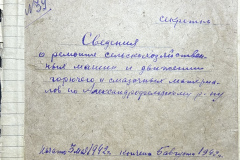 №39.
секретно.
Сведения
о ремонте сельскохозяйствен-
ных машин и движении
горючего и смазочных материа-
лов по Александровскому р-ну
начато 3 мая 1942г. кончено 6 августа 1942г.